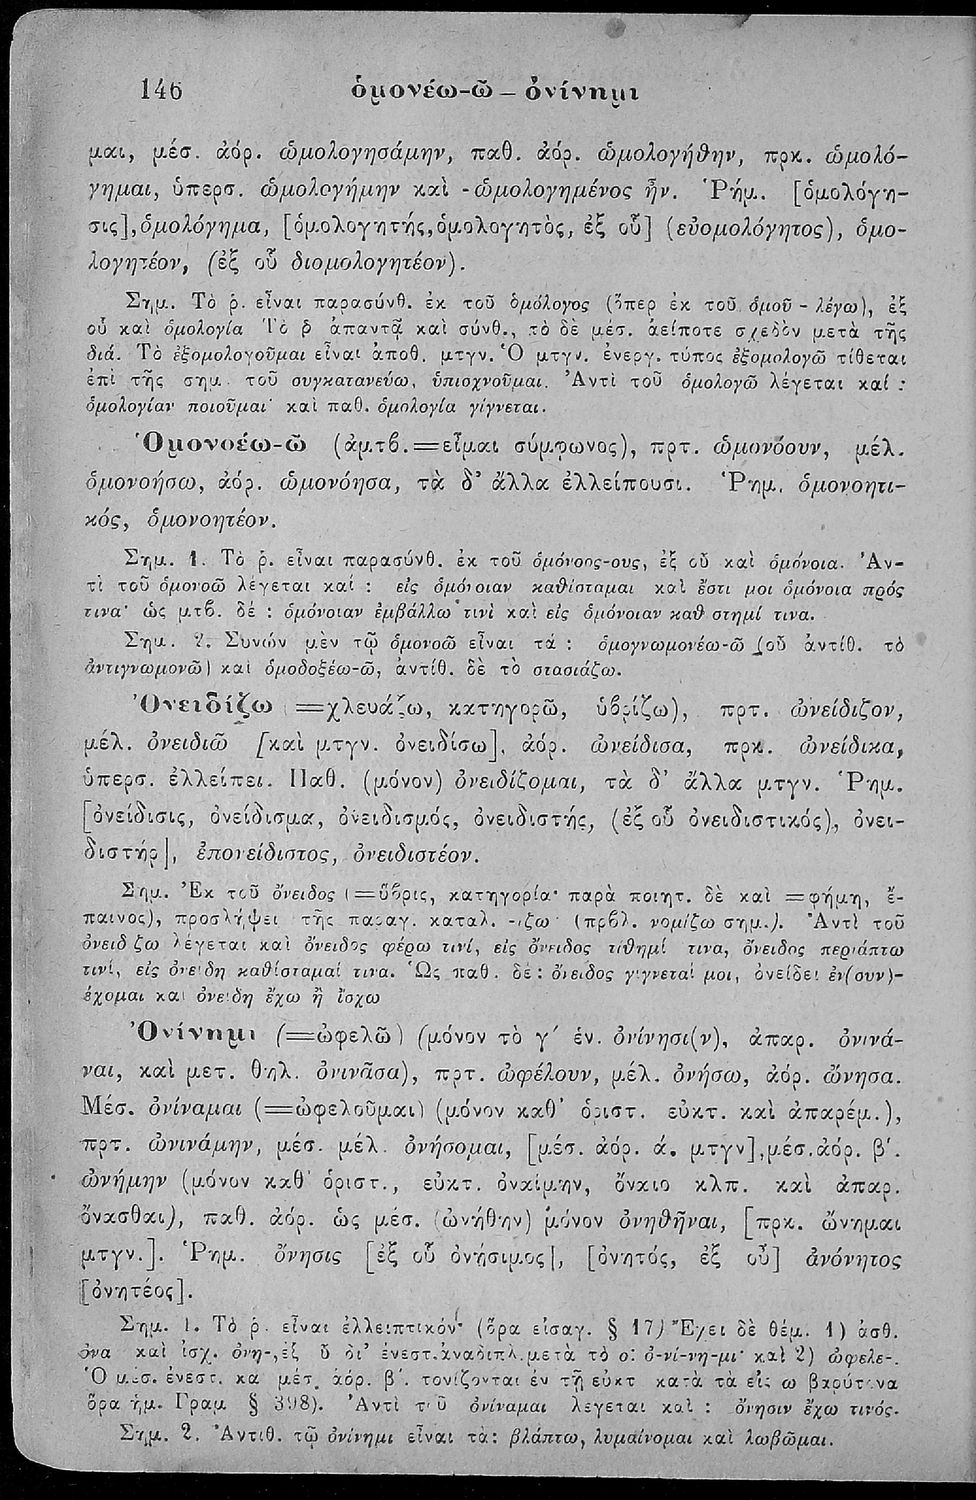 146 ὁμονέω-ῶ — ὀνίνημι
μαι, μέσ. ἀόρ. ὡμολογησάμην, παθ. ἀόρ. ὡμολογήθην, πρκ. ὡμολό-
γημαι, ὑπερσ. ὡμολογήμην καὶ - ὡμολογημένος ἦν. Ῥήμ. [ὁμολόγη-
σις], ὁμολόγημα, [ὁμολογητής, ὁμολογητὸς, ἐξ οὗ] (εὐομολόγητος), ὁμο-
λογητέον, (ἐξ οὗ διομολογητέον).
Σημ. Τὸ ῥ. εἶναι παρασύνθ. ἐκ τοῦ ὁμόλογος (ὅπερ ἐκ τοῦ ὁμοῦ - λέγω), ἐξ
οὗ καὶ ὁμολογία Τὸ ῥ ἁπαντᾷ καὶ σύνθ., τὸ δὲ μέσ. ἀείποτε σχεδὸν μετὰ τῆς
διά. Τὸ ἐξομολογοῦμαι εἶναι ἀποθ. μτγν. Ὁ μτγν. ἐνεργ. τύπος ἐξομολογῶ τίθεται
ἐπὶ τῆς σημ. τοῦ συγκατανεύω, ὑπισχνοῦμαι. Ἀντὶ τοῦ ὁμολογῶ λέγεται καί :
ὁμολογίαν ποιοῦμαι· καὶ παθ. ὁμολογία γίγνεται.
Ὁμονοέω-ῶ (ἀμτβ.=εἶμαι σύμφωνος), πρτ. ὡμονόουν, μέλ.
ὁμονοήσω, ἀόρ. ὡμονόησα, τὰ δ' ἄλλα ἐλλείπουσι. Ῥημ. ὁμονοητι-
κός, ὁμονοητέον.
Σημ. 1. Τὸ ῥ. εἶναι παρασύνθ. ἐκ τοῦ ὁμόνοος-ους, ἐξ οὗ καὶ ὁμόνοια. Ἀν-
τὶ τοῦ ὁμονοῶ λέγεται καί : εἰς ὁμόνοιαν καθίσταμαι καὶ ἔστι μοι ὁμόνοια πρός
τινα· ὡς μτβ. δέ : ὁμόνοιαν ἐμβάλλω τινὶ καὶ εἰς ὁμόνοιαν καθ στημί τινα.
Σημ. 2. Συνών μὲν τῷ ὁμονοῶ εἶναι τά : ὁμογνωμονέω-ῶ (οὗ ἀντίθ. τὸ
ἀντιγνωμονῶ) καὶ ὁμοδοξέω-ῶ, ἀντίθ. δὲ τὸ στασιάζω.
Ὀνειδίζω (=χλευάζω, κατηγορῶ, ὑβρίζω), πρτ. ὠνείδιζον,
μέλ. ὀνειδιῶ [καὶ μτγν. ὀνειδίσω], ἀόρ. ὠνείδισα, πρκ. ὠνείδικα,
ὑπερσ. ἐλλείπει. Παθ. (μόνον) ὀνειδίζομαι, τὰ δ' ἄλλα μτγν. Ῥημ.
[ὀνείδισις, ὀνείδισμα, ὀνειδισμός, ὀνειδιστής, (ἐξ οὗ ὀνειδιστικός), ὀνει-
διστήρ], ἐπονείδιστος, ὀνειδιστέον.
Σημ. Ἐκ τοῦ ὄνειδος (=ὕβρις, κατηγορία· παρὰ ποιητ. δὲ καὶ =φήμη, ἔ-
παινος), προσλήψει τῆς παραγ. καταλ. -ίζω (πρβλ. νομίζω σημ.). Ἀντὶ τοῦ
ὀνειδ ζω λέγεται καὶ ὄνειδος φέρω τινί, εἰς ὄνειδος τίθημί τινα, ὄνειδος περιάπτω
τινί, εἰς ὀνείδη καθίσταμαί τινα. Ὡς παθ. δέ : ὄνειδος γίγνεταί μοι, ὀνείδει ἐν(συν)-
έχομαι καὶ ὀνείδη ἔχω ἢ ἴσχω
Ὀνίνημι (=ὠφελῶ) (μόνον τὸ γ΄ ἑν. ὀνίνησι(ν), ἀπαρ. ὀνινά-
ναι, καὶ μετ. θηλ. ὀνινᾶσα), πρτ. ὠφέλουν, μέλ. ὀνήσω, ἀόρ. ὤνησα.
Μέσ. ὀνίναμαι (=ὠφελοῦμαι) (μόνον καθ' ὁριστ. εὐκτ. καὶ ἀπαρέμ.),
πρτ. ὠνινάμην, μέσ. μέλ. ὀνήσομαι, [μέσ. ἀόρ. ά. μτγν], μέσ. ἀόρ. β΄.
ὠνήμην (μόνον καθ' ὁριστ., εὐκτ. ὀναίμην, ὄναιο κλπ. καὶ ἀπαρ.
ὄνασθαι), παθ. ἀόρ. ὡς μέσ. (ὠνήθην) μόνον ὀνηθῆναι, [πρκ. ὤνημαι
μτγν.]. Ῥημ. ὄνησις [ἐξ οὗ ὀνήσιμος], [ὀνητός, ἐξ οὗ] ἀνόνητος
[ὀνητέος].
Σημ. 1. Τὸ ῥ. εἶναι ἐλλειπτικόν· (ὅρα εἰσαγ. § 17) Ἔχει δὲ θέμ. 1) ἀσθ.
ὀνα καὶ ἰσχ. ὀνη-, ἐξ ὗ δι' ἐνεστ. ἀναδιπλ. μετὰ τὸ ο: ὀ-νί-νη-μι· καὶ 2) ὠφελε-.
Ὁ μέσ. ἐνεστ. κα μέσ. ἀόρ. β΄. τονίζονται ἐν τῇ εὐκτ κατὰ τὰ εἰς ω βαρύτονα
ὅρα ἡμ. Γραμ § 398). Ἀντὶ τοῦ ὀνίναμαι λέγεται καὶ : ὄνησιν ἔχω τινός.
Σημ. 2. Ἀντιθ. τῷ ὀνίνημι εἶναι τὰ : βλάπτω, λυμαίνομαι καὶ λωβῶμαι.